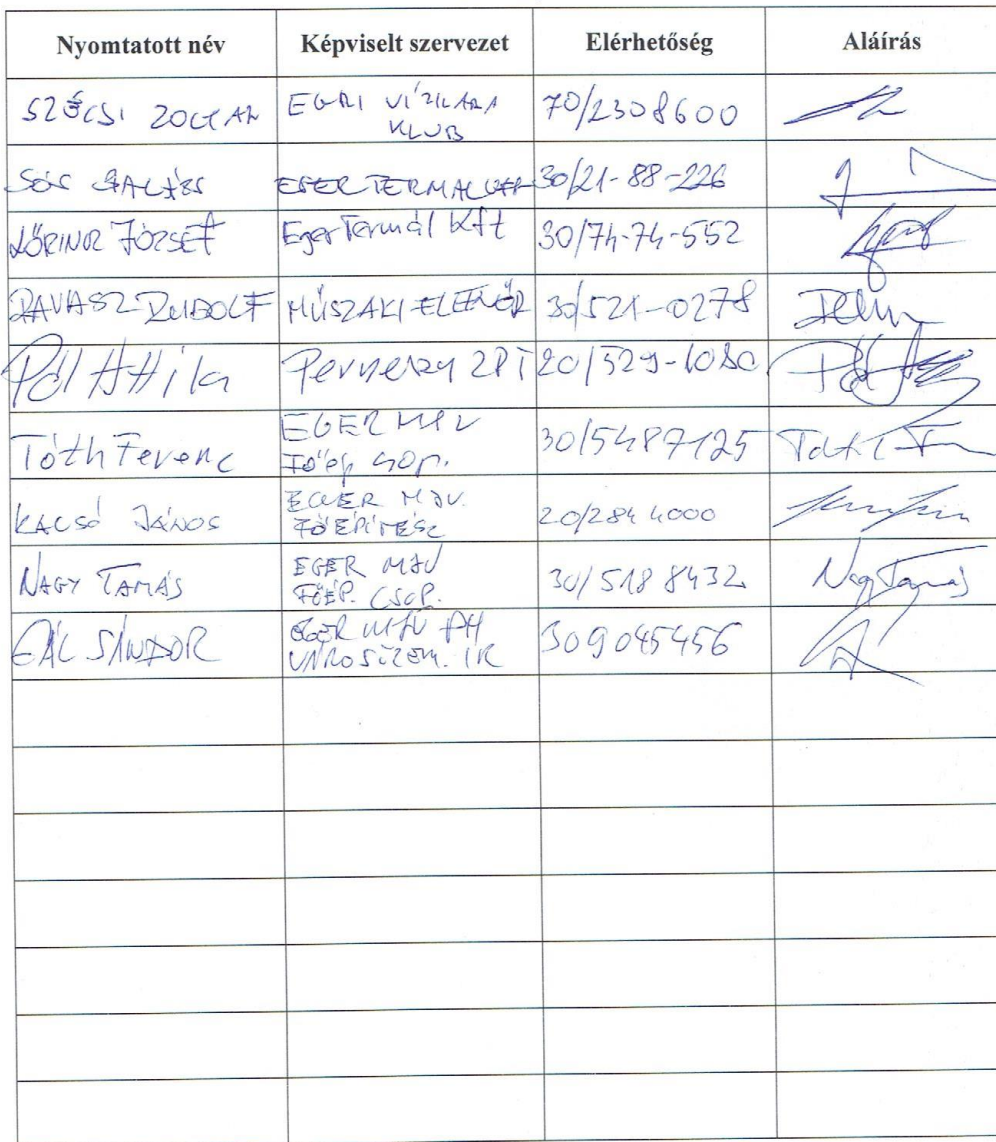 Nyomtatott név Képviselt szervezet Elérhetőség Aláírás
SZÉCSI ZOLTÁN EGRI VÍZILABDA KLUB 70/2308600
SÓS BALÁZS EGER TERMÁL KFT 30/21-88-226
LŐRINCZ JÓZSEF Eger Termál Kft 30/74-74-552
RAVASZ RUDOLF MŰSZAKI ELLENŐR 30/521-0278
Pál Attila 20/529-1080
Tóth Ferenc EGER MJV Főép. csop. 30/5487125 Tóth F
KACSÓ JÁNOS EGER MJV. FŐÉPÍTÉSZ 20/284 4000
NAGY TAMÁS EGER MJV FŐÉP. CSOP. 30/518 8432 Nagy Tamás
GÁL SÁNDOR EGER MJV PH VÁROSÜZEM. IR 309045456